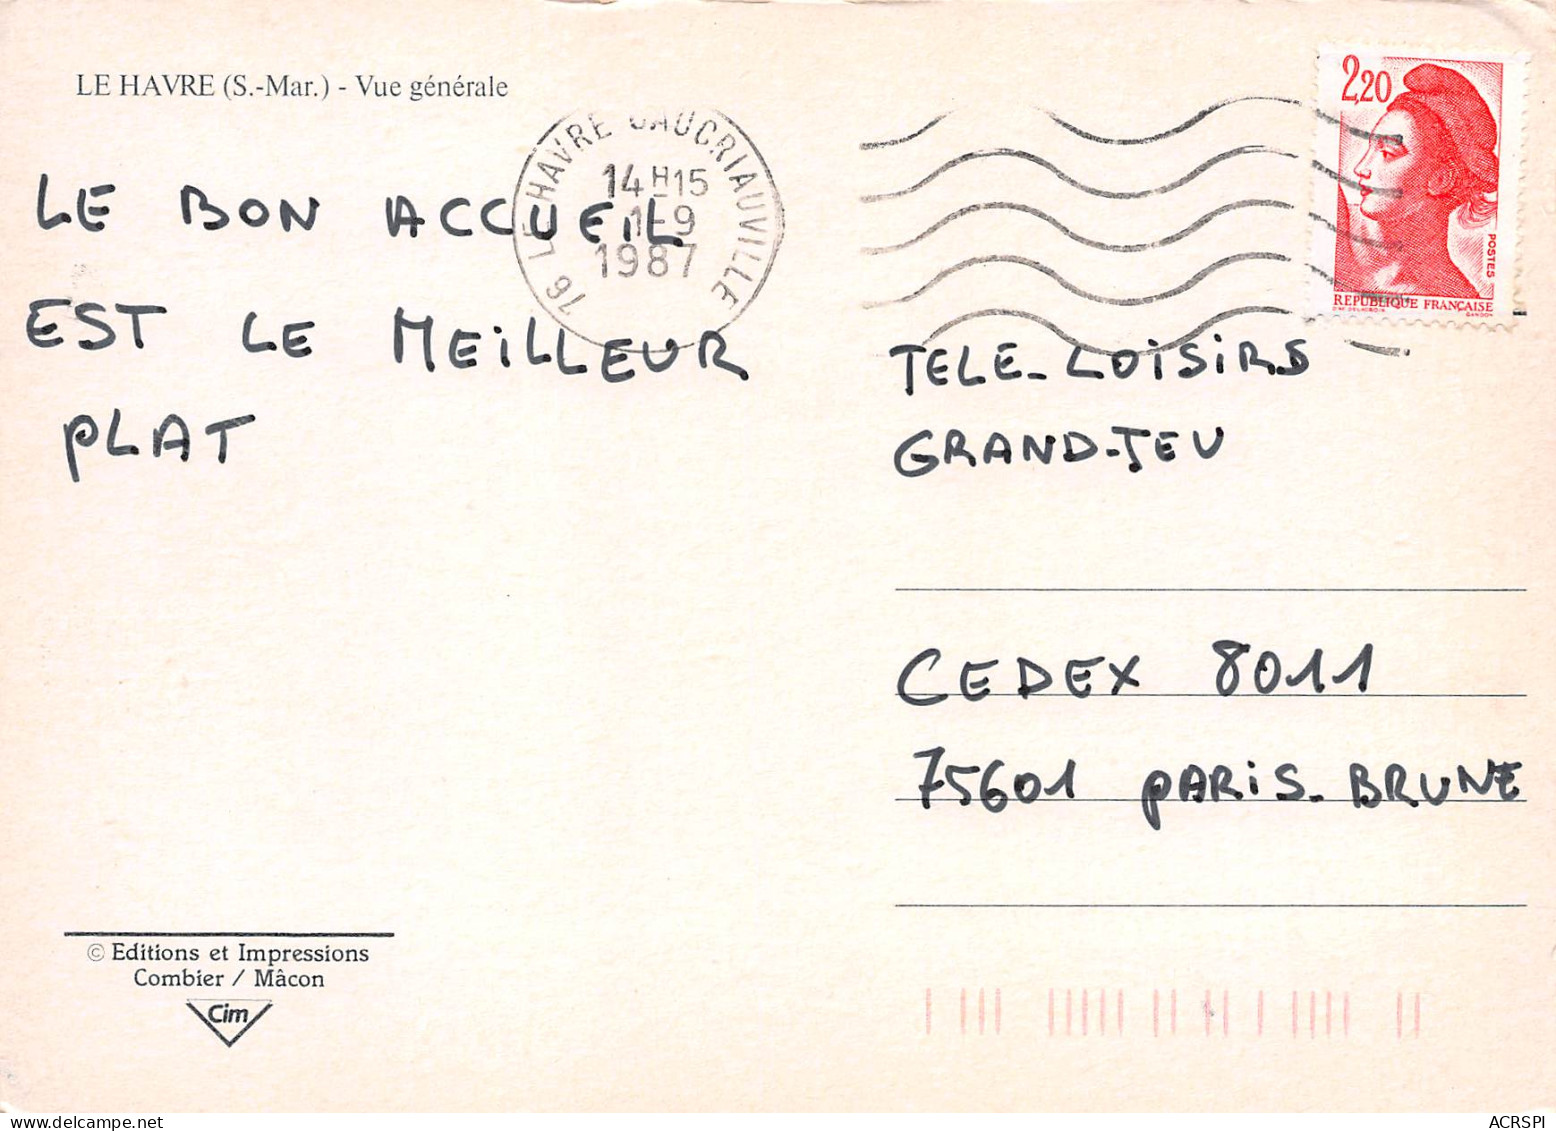 LE HAVRE (S.-Mar.) - Vue générale
76 LE HAVRE CAUCRIAUVILLE
14 H 15
1-9
1987
2,20
POSTES
REPUBLIQUE FRANÇAISE
GANDON
LE BON ACCUEIL
EST LE MEiLLEUR
PLAT
TELE-LOiSiRS
GRAND-JEU
CEDEX 8011
75601 PARiS-BRUNE
© Editions et Impressions
Combier / Mâcon
Cim
ACRSPI